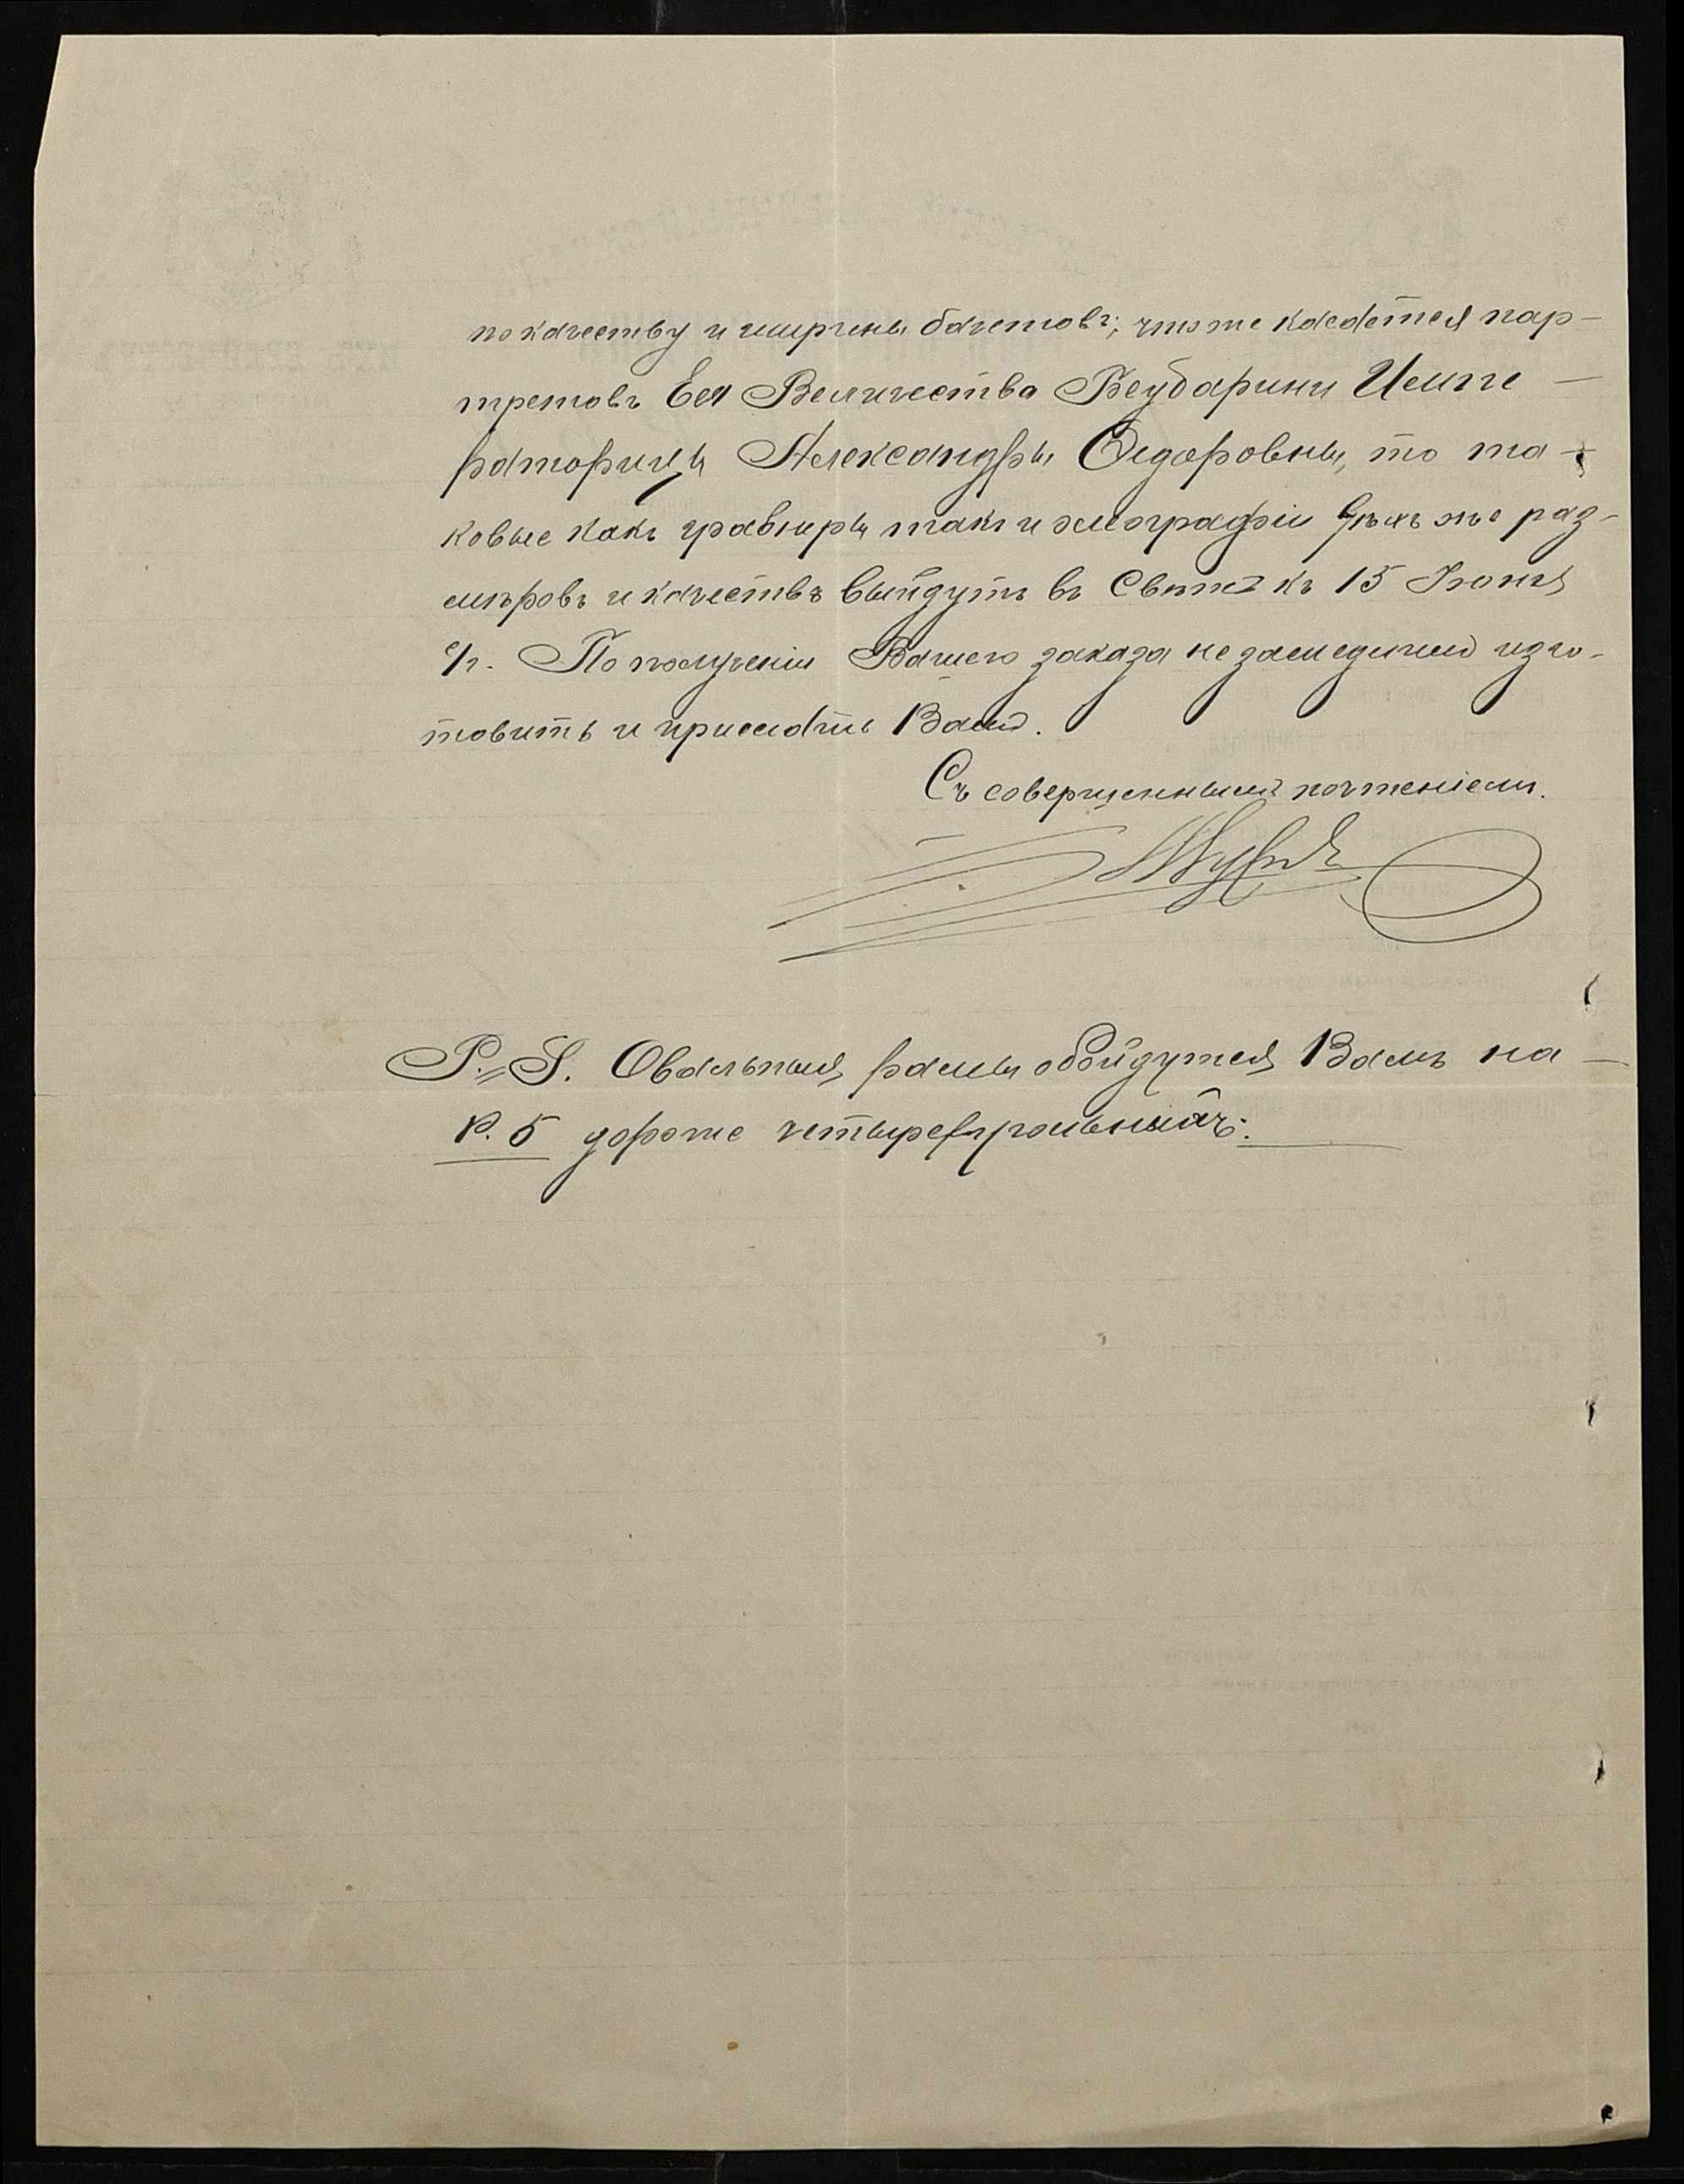 по качеству и ширины багетовъ; что же касается пар-
третовъ Ея Величества Государыни Импе-
ратрицы Александры Фёдоровны, то та-
ковые какъ гравюры такъ и олеографіи тѣхъ же раз-
мѣровъ и качествъ выйдутъ въ свѣтъ къ 15 Іюня
с/г. По полученіи Вашего заказа не замедлимъ изго-
товить и прислать Вамъ.
Съ совершеннымъ почтеніемъ.
P.S. Овальныя рамы обойдутся Вамъ на
р. 5 дороже четыреугольныхъ.